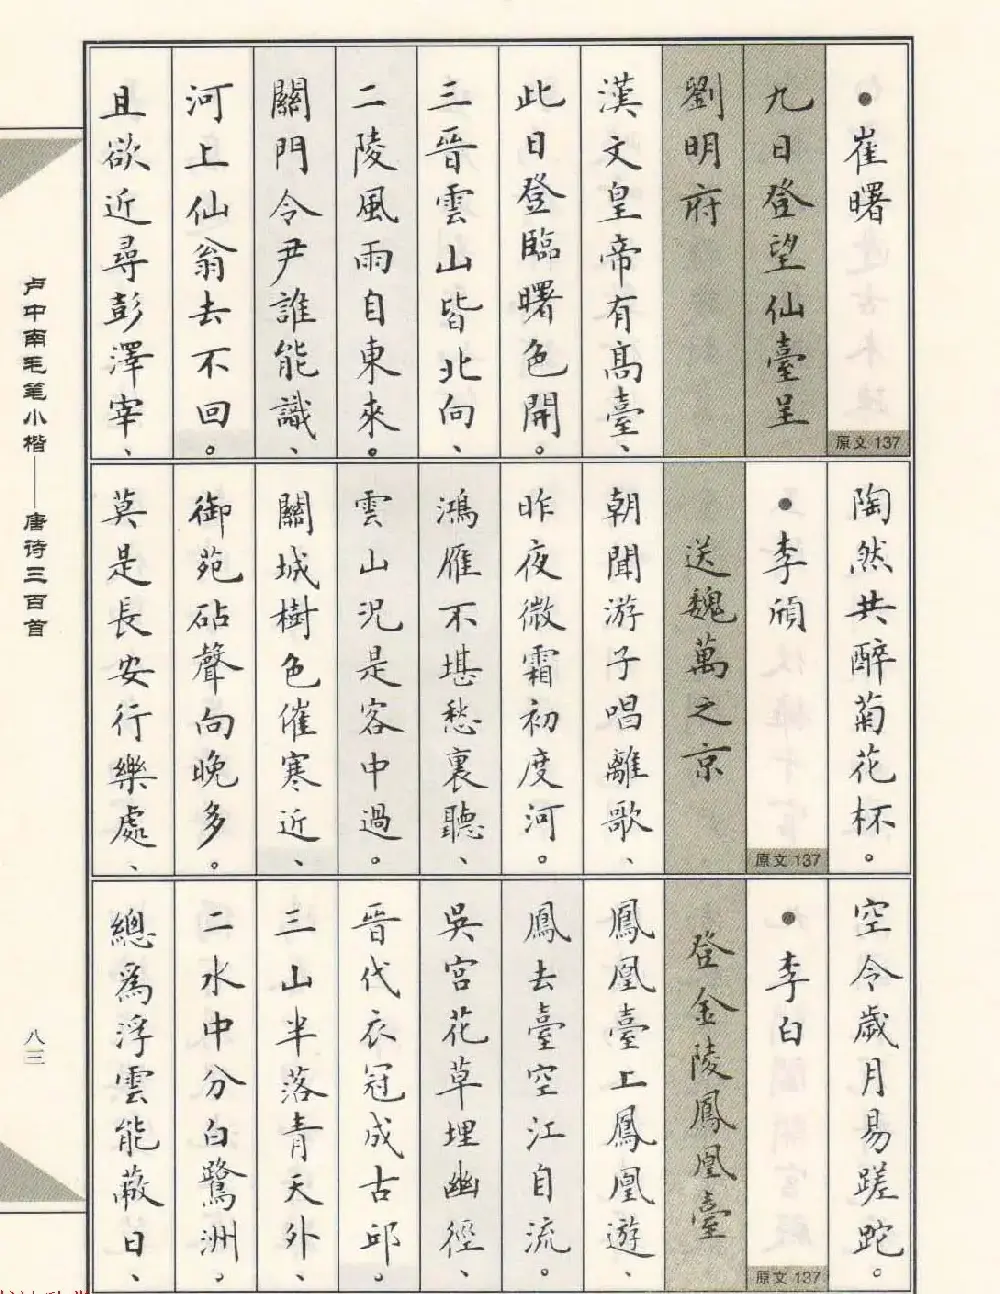 ●崔曙
原文 137
九日登望仙臺呈
劉明府
漢文皇帝有高臺、
此日登臨曙色開。
三晉雲山皆北向、
二陵風雨自東來。
關門令尹誰能識、
河上仙翁去不回。
且欲近尋彭澤宰、
陶然共醉菊花杯。
●李頎
原文 137
送魏萬之京
朝聞游子唱離歌、
昨夜微霜初度河。
鴻雁不堪愁裏聽、
雲山況是客中過。
關城樹色催寒近、
御苑砧聲向晚多。
莫是長安行樂處、
空令歲月易蹉跎。
●李白
原文 137
登金陵鳳凰臺
鳳凰臺上鳳凰遊、
鳳去臺空江自流。
吳宮花草埋幽徑、
晉代衣冠成古邱。
三山半落青天外、
二水中分白鷺洲。
總為浮雲能蔽日、
卢中南毛笔小楷——唐诗三百首
八三